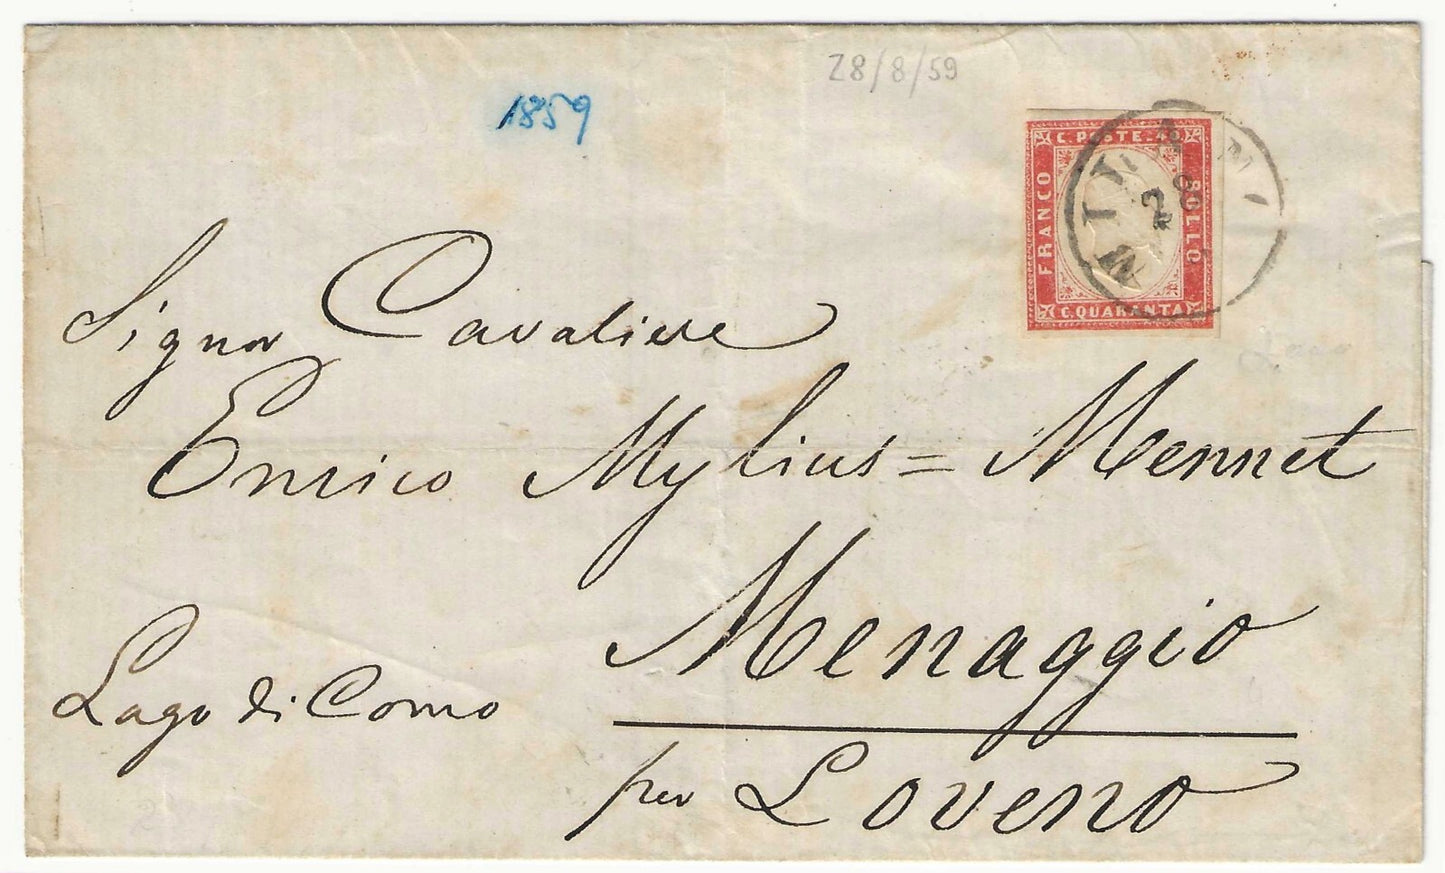 28/8/59
1859
C. POSTE. 40
FRANCO
BOLLO
C. QUARANTA
MILANO
28
Signor Cavaliere
Enrico Mylius = Mennet
Menaggio
Lago di Como
per Loveno